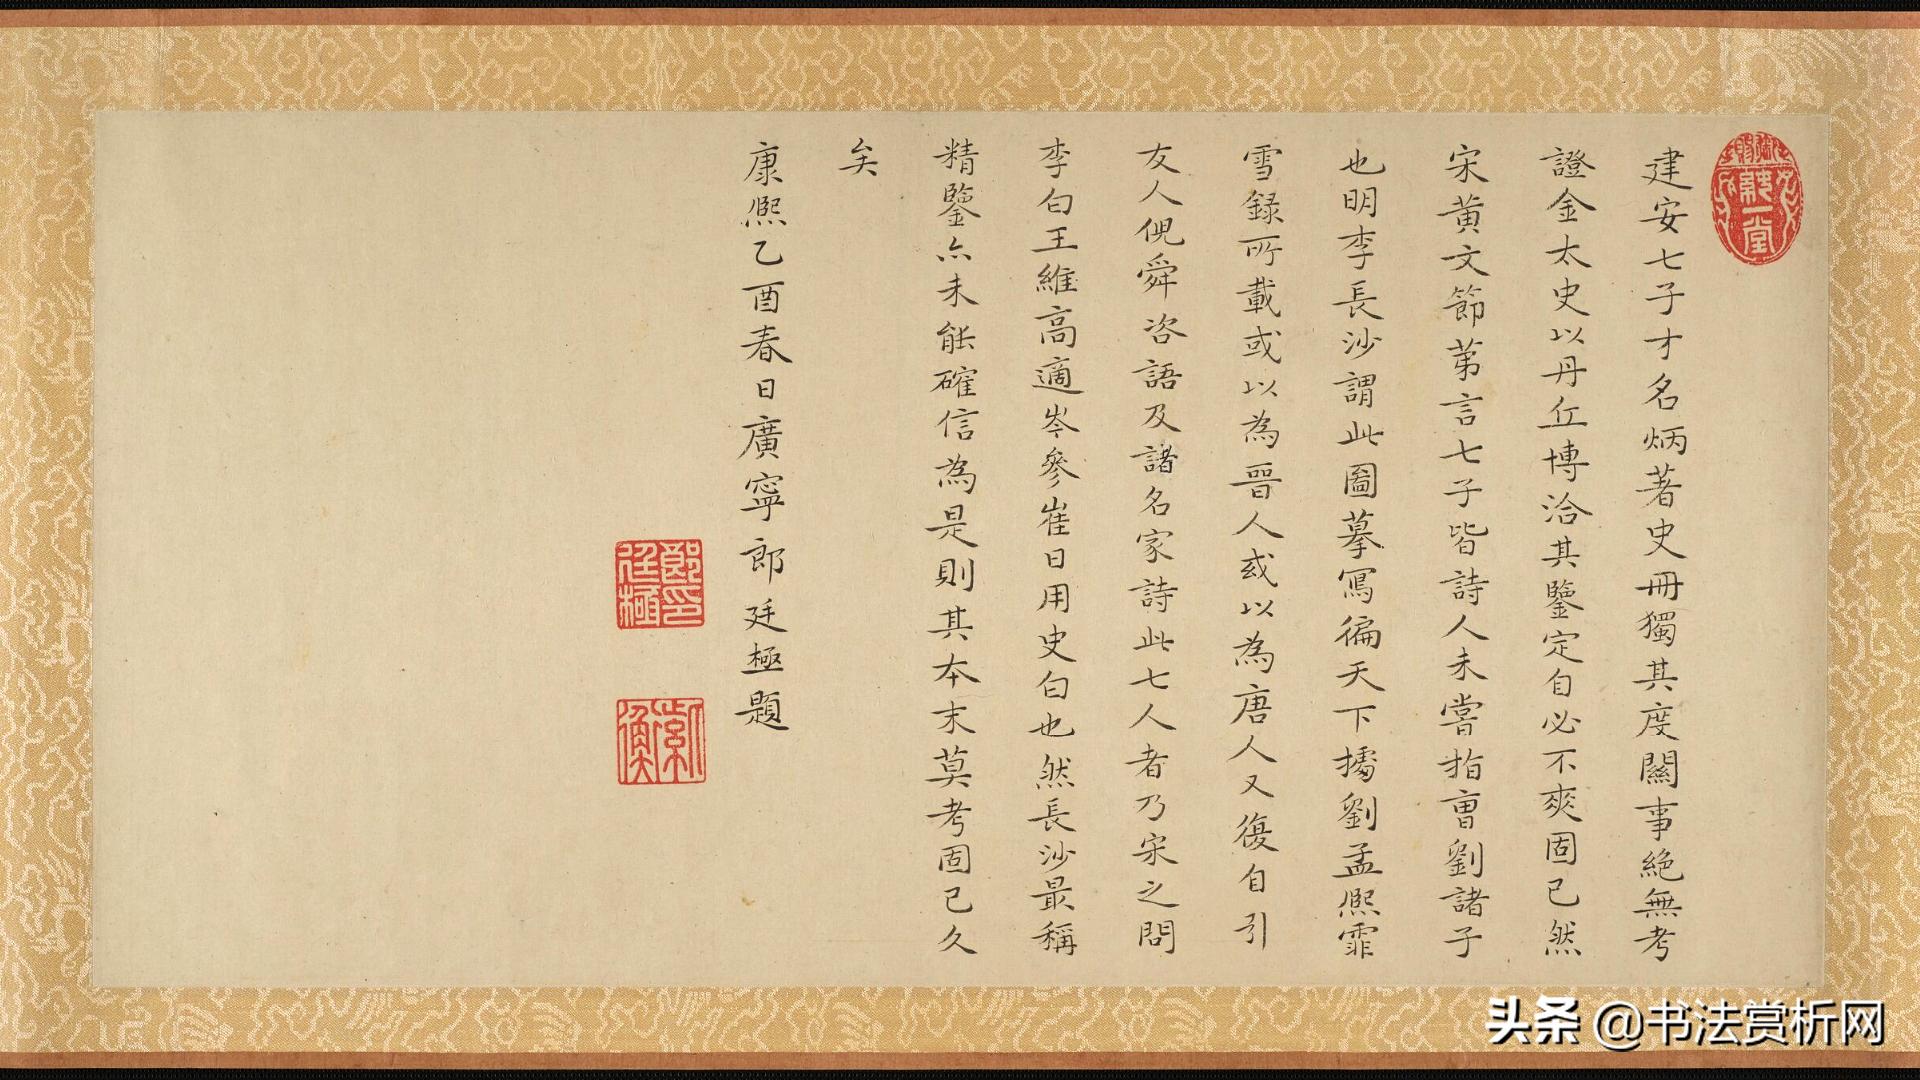 建安七子才名炳著史冊獨其度關事絶無考
證金太史以丹丘博洽其鑒定自必不爽固已然
宋黄文節第言七子皆詩人未嘗指曹劉諸子
也明李長沙謂此圖摹寫徧天下據劉孟熙霏
雪録所載或以為晉人或以為唐人又復自引
友人倪舜咨語及諸名家詩此七人者乃宋之問
李白王維高適岑參崔日用史白也然長沙最稱
精鑒亦未能確信為是則其本末莫考固已久
矣
康熙乙酉春日廣寧郎廷極題
郎廷極印
紫衡
头条 @书法赏析网